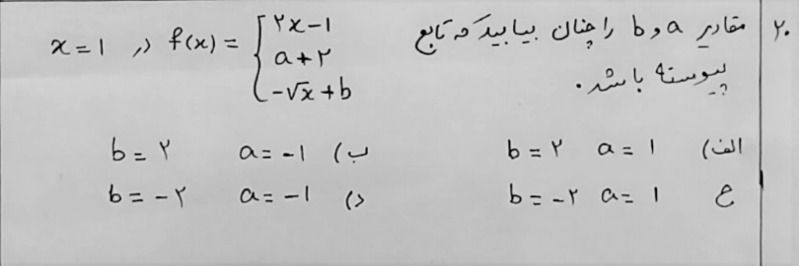 ۲۰. مقادیر a و b را چنان بیابید که تابع f(x) = { ۲x-۱ در x=۱
a+۲
-√x+b
پیوسته باشد.
الف) a= ۱ b= ۲ ب) a= -۱ b= ۲
ج a= ۱ b= -۲ د) a= -۱ b= -۲